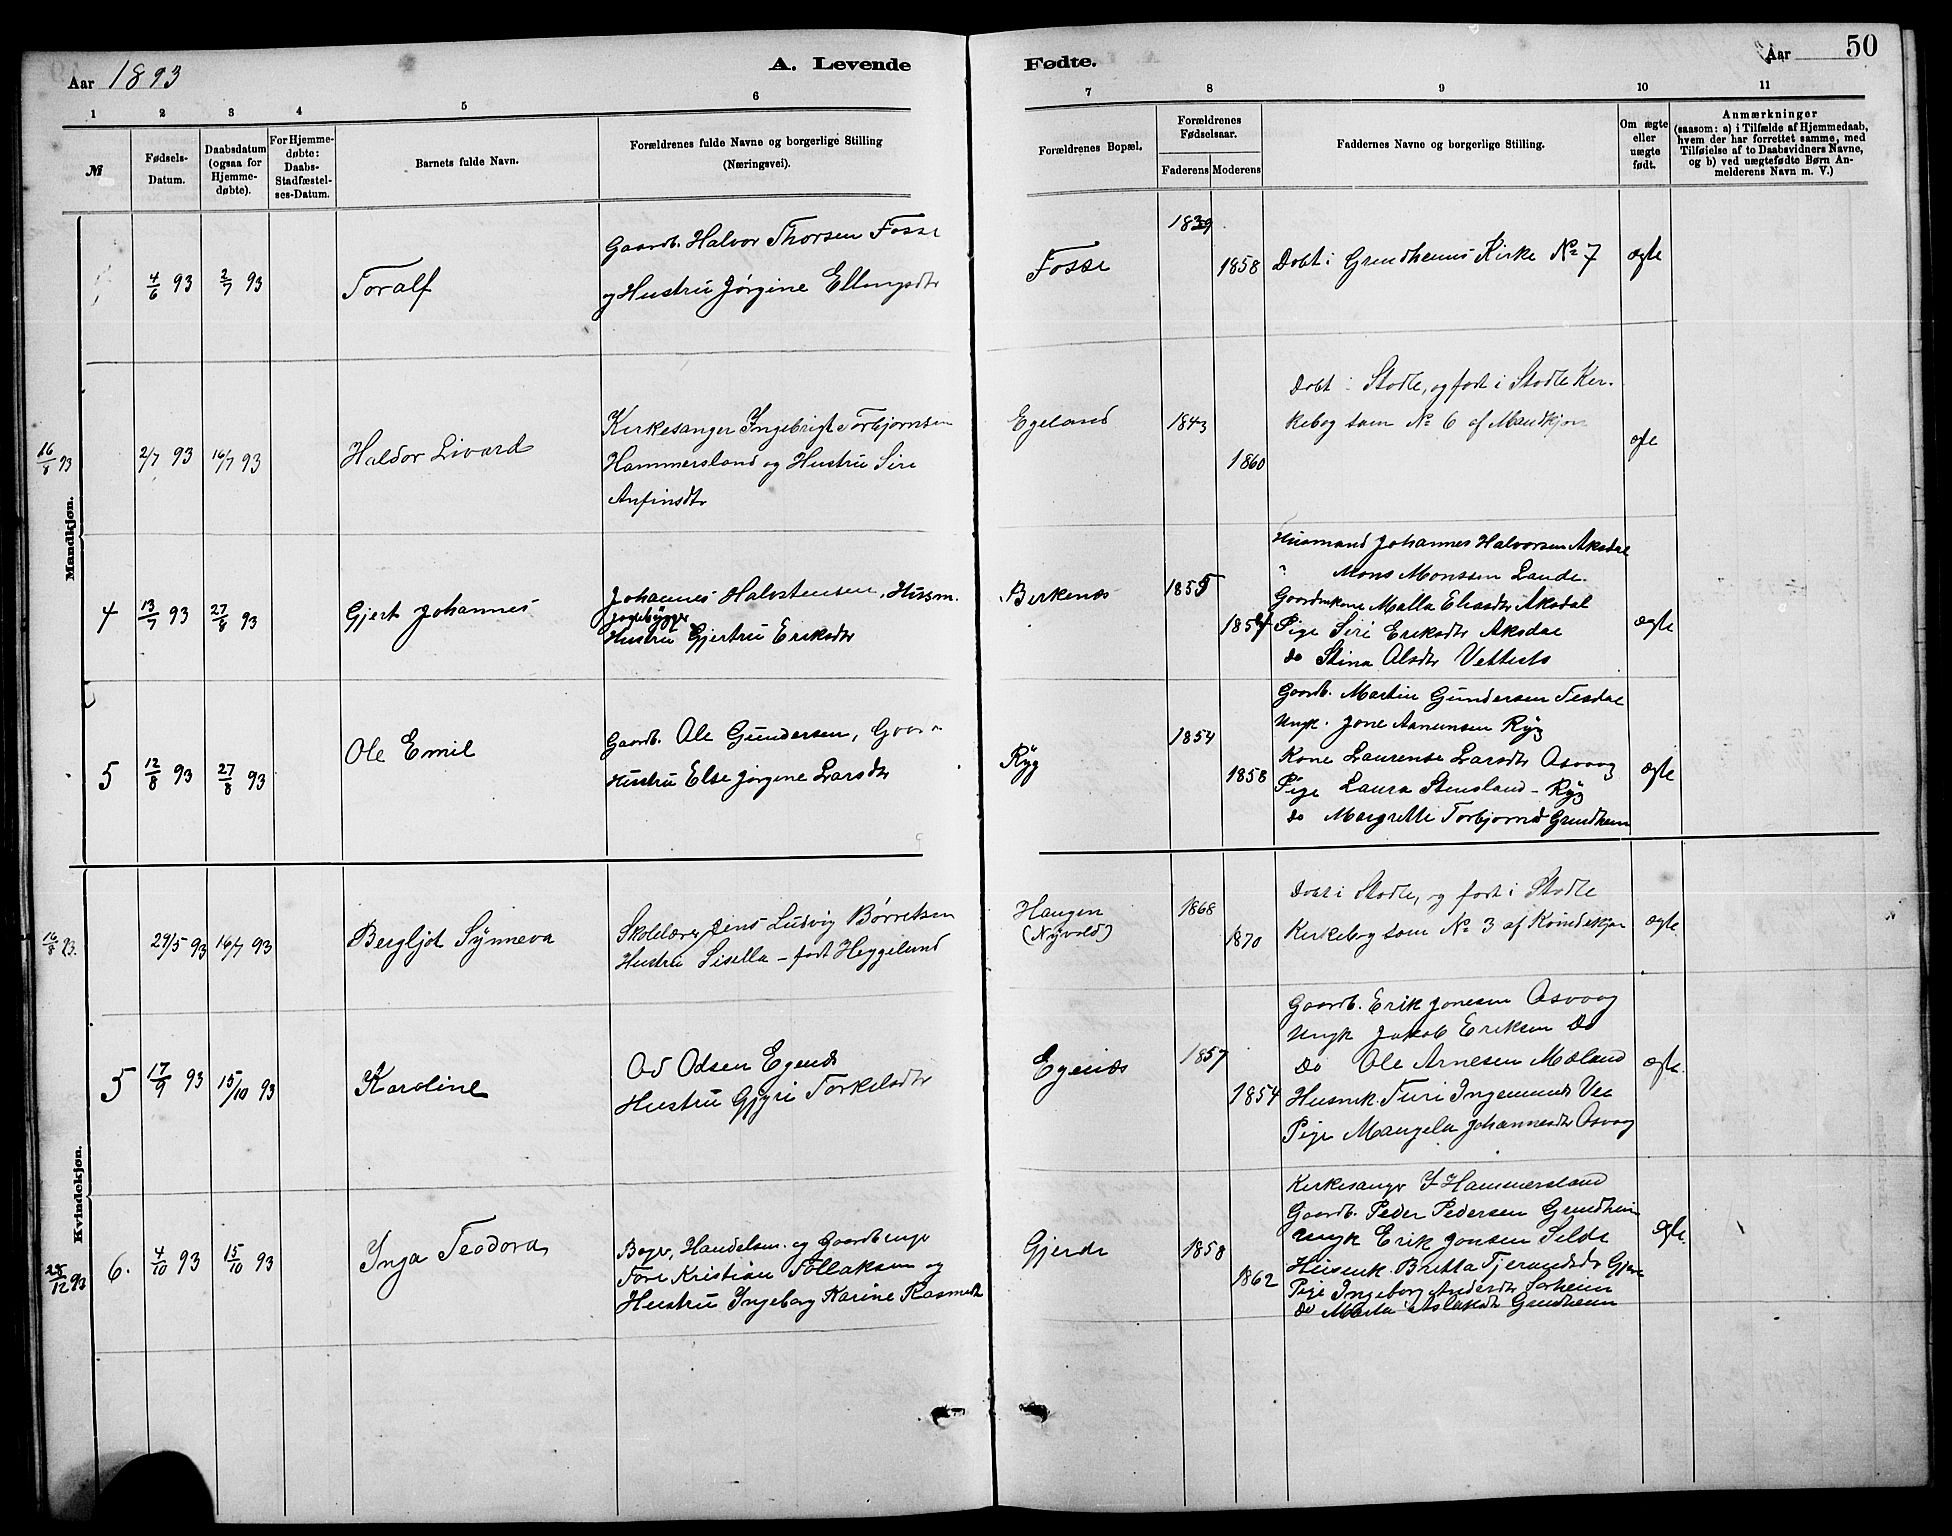 Aar 1893
A. Levende
Fødte.
Aar
50
1 2 3 4 5 6 7 8 9 10 11
№
Fødsels-
Datum.
Daabsdatum
(ogsaa for
Hjemme-
døbte).
For Hjemme-
døbte:
Daabs-
Stadfæstel-
ses-Datum.
Barnets fulde Navn.
Forældrenes fulde Navne og borgerlige Stilling
(Næringsvei).
Forældrenes Bopæl.
Forældrenes
Fødselsaar.
Faderens Moderens
Faddernes Navne og borgerlige Stilling.
Om ægte
eller
uægte
født.
Anmærkninger
(saasom: a) i Tilfælde af Hjemmedaab,
hvem der har forrettet samme, med
Tilføielse af to Daabsvidners Navne,
og b) ved uægtefødte Børn An-
melderens Navn m. V.)
Mandkjøn.
4/6 93 2/7 93
Toralf
Gaardb. Halvor Thorsen Fosse
og Hustru Jørgine Ellingsdtr
Fosse
1839
1858
Dobt i Grindheims Kirke No 7
ægte
16/8 93
2/7 93 16/7 93
Haldor Livard
Kirkesanger Ingebrigt Torbjornsen
Hammersland og Hustru Siri
Anfinsdtr
Egeland
1843
1860
Dobt i Skodle, og fort i Skodle Kir-
kebog som No 6 af Mandkjøn
ægte
4 13/7 93 27/8 93
Gjert Johannes
Johannes Halvstensen, Husm.
Hustru Gjertru Eriksdtr
Birkenæs
1855
Husmand Johannes Halvorsen Aksdal
" Mons Monssen Lande
Gaardmkone Malla Eliasdtr Aksdal
Pige Siri Eriksdtr Aksdal
do Stina Olsdtr
ægte
5 12/8 93 27/8 93
Ole Emil
Gaardb. Ole Gundersen,
Hustru Else Jørgine Larsdtr
Ryg
1854
1858
Gaardb. Martin Gundersen Tesdal
Ungk. Jone Aanensen Ryg
Kone Laurense Larsdtr Osvaag
Pige Laura Stensland - Ryg
do Margrette Torbjornsd Grindheim
ægte
Kvindekjøn.
16/8 93.
29/5 93 16/7 93
Bergljot Synneva
Skolelærer Jens Ludvig Børretsen
Hustru Sisella - født Heggelund
Haugen
(Nyvold)
1868
1870
Dobt i Skodle, og fort i Skodle
Kirkebog som No 3 af Kvindekjøn
ægte
5 17/9 93 15/10 93
Karoline
Od Odsen Egenæs
Hustru Gjyri Torkelsdtr
Egenæs
1857
1854
Gaardb. Erik Jonesen Osvaag
Ungk Jakob Eriksen Do
Do Ole Arnesen Mæland
Husmk. Turi Ingemunds Vee
Pige Mangela Johannesdtr Osvaag
ægte.
28/12 93
6. 4/10 93 15/10 93
Inga Teodora
Bager, Handelsm. og Gaardbruger
Tore Kristian Tollaksen og
Hustru Ingeborg Karine Rasmusdtr
Gjerde
1858
1862
Kirkesanger I Hammersland
Gaardb. Peder Pedersen Grindheim
Ungk Erik Jonsen Selde
Husmk. Britta Tjerandsdtr Gjerde
Pige Ingeborg Andersdtr Sørheim
do Marta Aslaksdtr Grindheim
ægte.